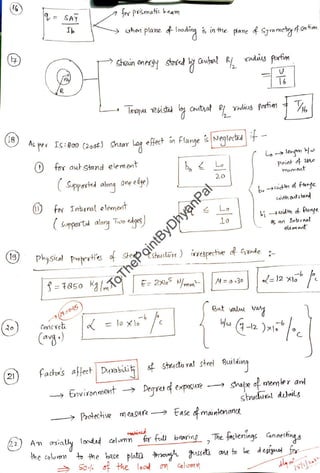 (16) q = SAȲ / Ib → for prismatic beam
→ when plane of loading is in the plane of symmetry of section
(17) R/2 R → Strain energy stored by central R/2 radius portion
= U/16
→ Torque resisted by central R/2 radius portion = T/16
(18) As per IS:800 (2007) Shear Lag effect in flange is Neglected if -
(i) for outstand element
(Supported along one edge)
b₀ ≤ L₀/20
(ii) For Internal element
(Supported along Two edges)
≤ L₀/10
L₀ → length b/w
point of zero
moment
b₀ → width of flange
outstand
bᵢ → width of flange
as an Internal
element
(19) Physical Properties of Steel (structure) irrespective of Grade :-
ρ = 7850 kg/m³ E = 2x10⁵ N/mm² μ = 0.30 α = 12 x10⁻⁶ /°c
(20) Concrete
(avg.)
α = 10 x10⁻⁶ /°c
But value vary
b/w (7-12) x10⁻⁶ /°c
(21) Factors affect Durability of structural steel Building
→ Environment → Degree of exposure → shape of member and
structural details
→ Protective measure → Ease of maintenance
(22) An axially loaded column for full bearing, The fastenings connecting
the column to the base plate through gussets are to be designed for
⇒ 50% of the load on column
ToThePointByDhyanPal